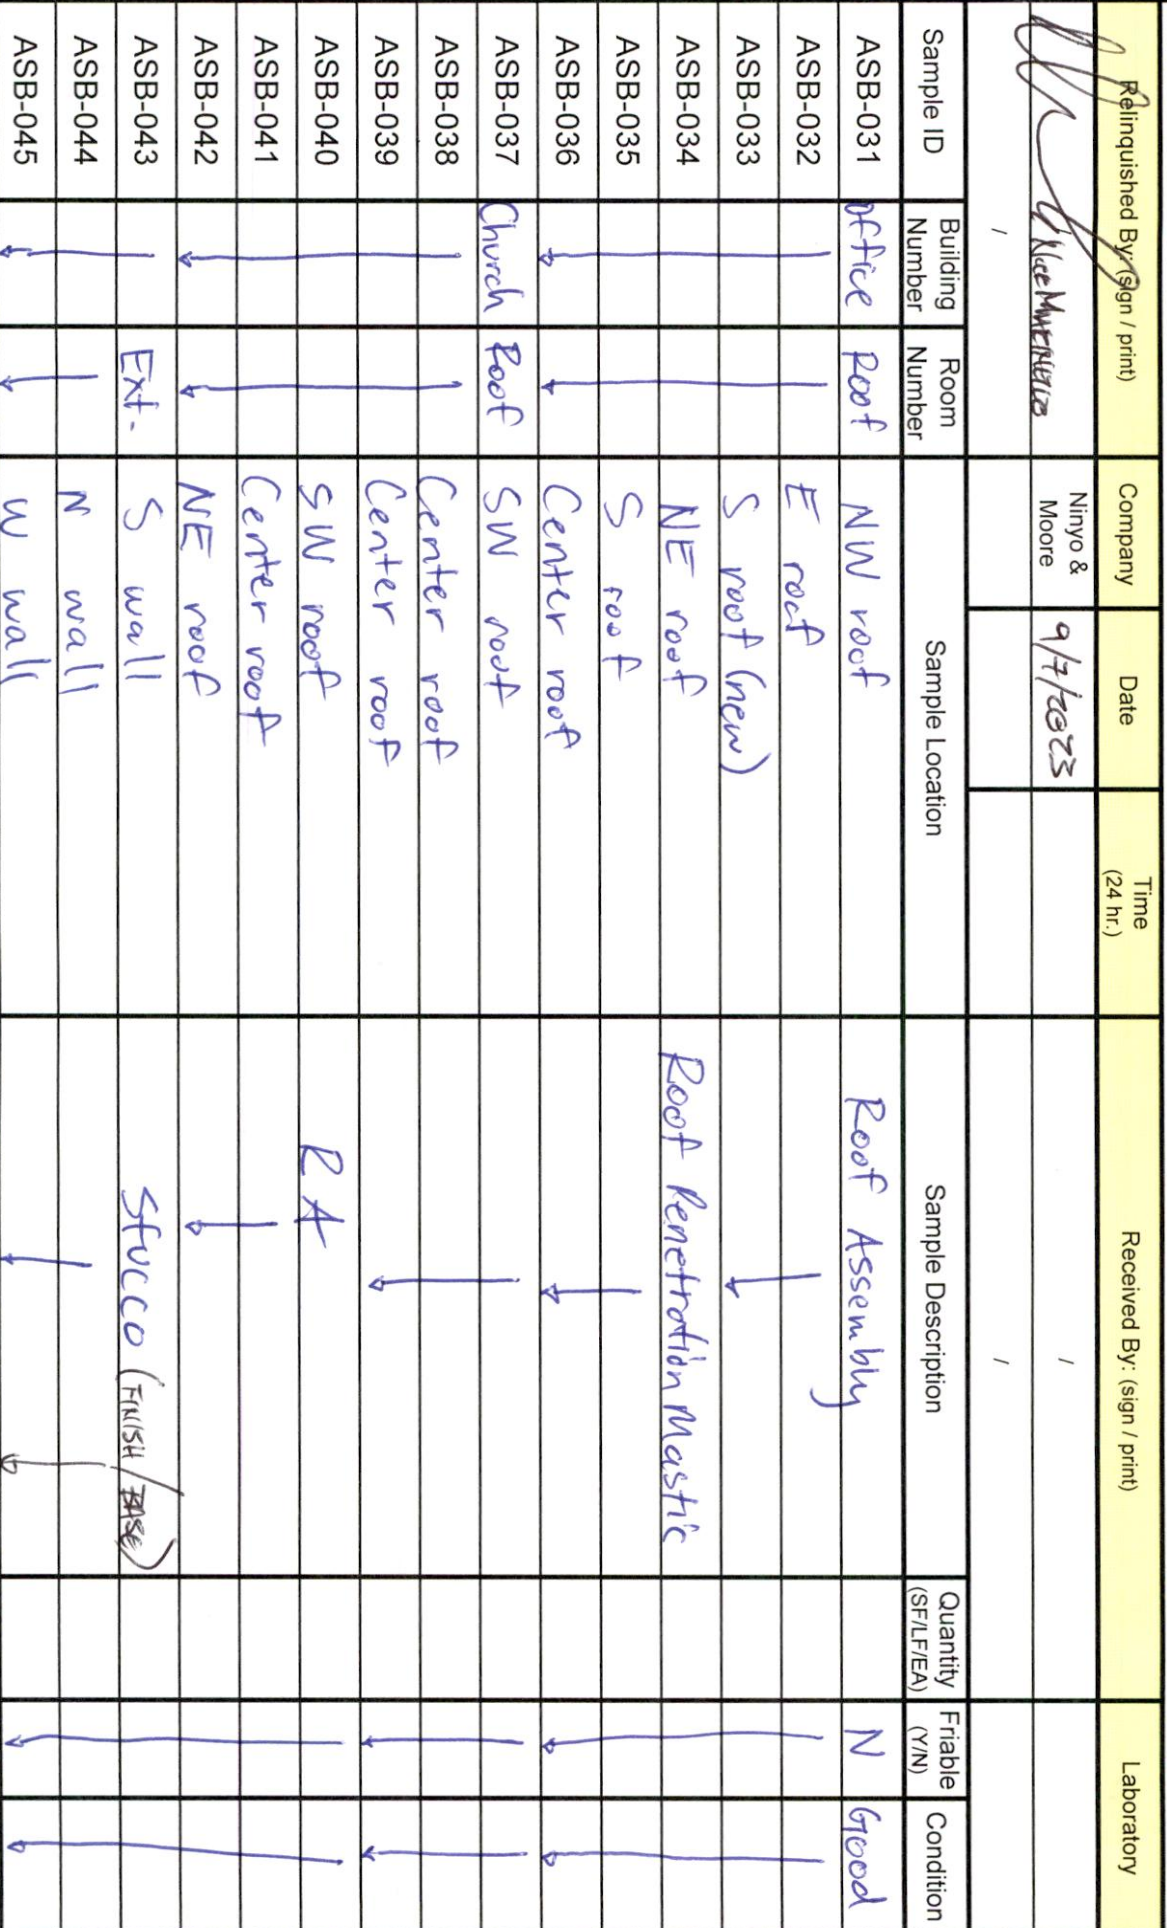 Relinquished By: (sign / print) Company Date Time (24 hr.) Received By: (sign / print) Laboratory
Ninyo & Moore 9/7/2023 /
/ /
Sample ID Building Number Room Number Sample Location Sample Description Quantity (SF/LF/EA) Friable (Y/N) Condition
ASB-031 office Roof NW roof Roof Assembly N Good
ASB-032 E roof
ASB-033 S roof (new)
ASB-034 NE roof Roof Penetration Mastic
ASB-035 S roof
ASB-036 Center roof
ASB-037 Church Roof SW roof
ASB-038 Center roof
ASB-039 Center roof
ASB-040 SW roof RA
ASB-041 Center roof
ASB-042 NE roof
ASB-043 Ext. S wall Stucco (FINISH / BASE)
ASB-044 N wall
ASB-045 W wall